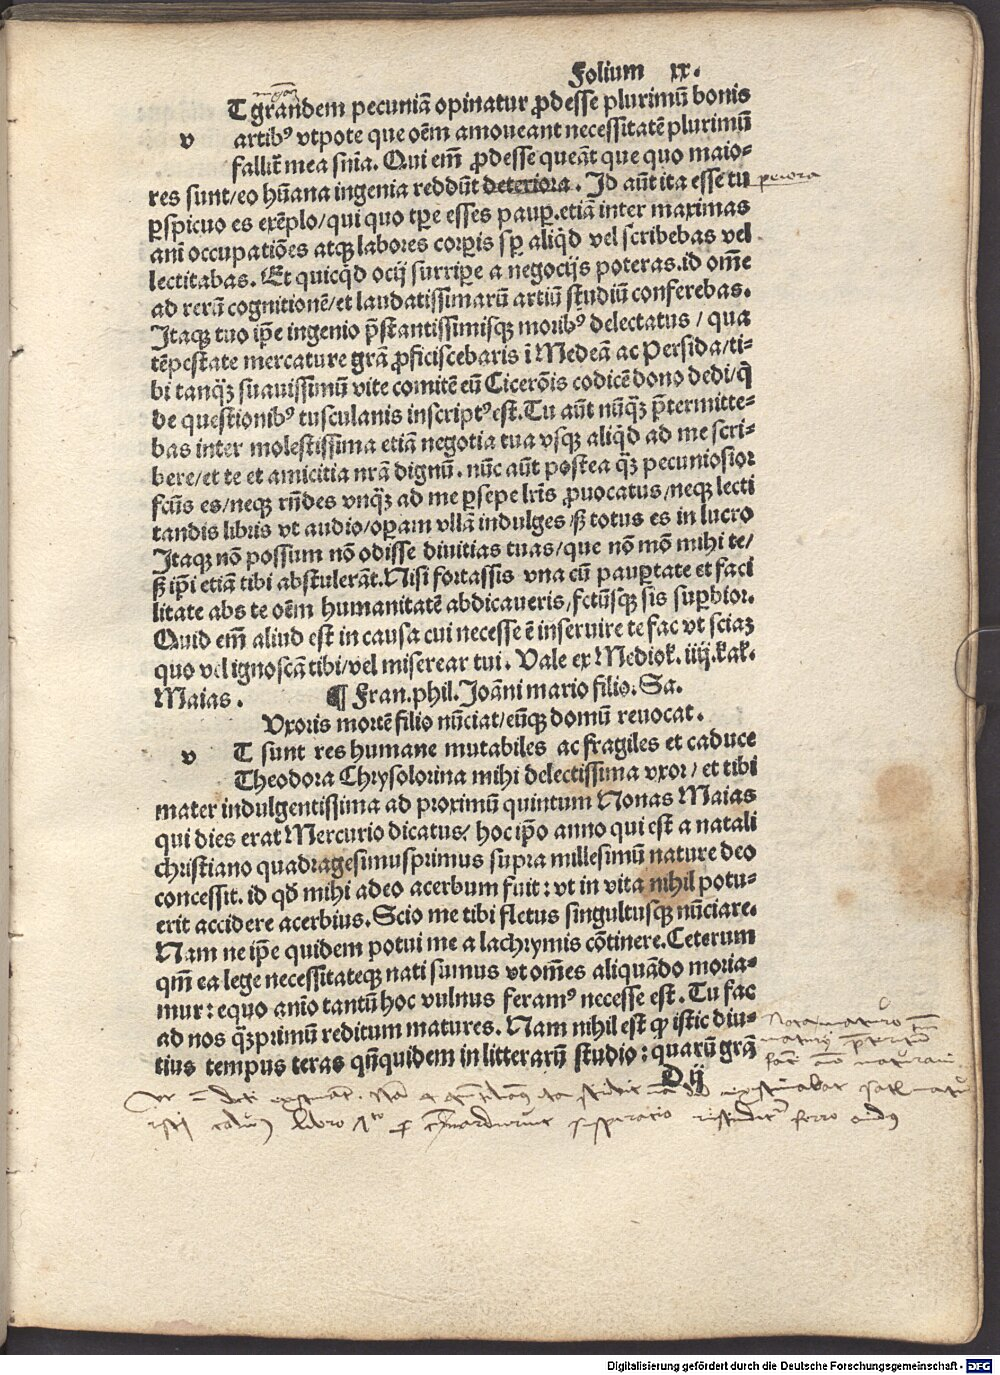 Folium ıx.
T grandem pecuniā opinatur ꝓdesse plurimū bonis
v artibꝰ vtpote que oēm amoueant necessitatē plurimū
fallit̄ mea snīa. Qui em̄ ꝓdesse queāt que quo maio⸗
res sunt/eo hūana ingenia reddūt deteriora. Id aūt ita esse tu peiora
ꝑspicuo es exēplo/qui quo tꝑe esses pauꝑ.etiā inter maximas
ani occupatiōes atqꝫ labores corꝑis sꝑ aliqͥd vel scribebas vel
lectitabas. Et quicqͥd ocij surriꝑe a negocijs poteras.id om̄e
ad rerū cognitionē/et laudatissimarū artiū studiū conferebas.
Itaqꝫ tuo ip̄e ingenio p̄stantissimisqꝫ moribꝰ delectatus / qua
tēpestate mercature grā ꝓficiscebaris ī Medeā ac Persida/ti⸗
bi tanqͣꝫ suauissimū vite comitē eū Cicerōis codicē dono dedi/q̄
de questionibꝰ tusculanis inscriptꝰ est.Tu aūt nūqͣꝫ p̄termitte⸗
bas inter molestissima etiā negotia tua vsqꝫ aliqͥd ad me scri⸗
bere/et te et amicitia nrā dignū. nūc aūt postea qͣꝫ pecuniosior
fct̄us es/neqꝫ rn̄des vnqͣꝫ ad me ꝑsepe lr̄is ꝓuocatus/neqꝫ lecti
tandis libris vt audio/oꝑam vllā indulges/sꝫ totus es in lucro
Itaqꝫ nō possum nō odisse diuitias tuas/que nō mō mihi te/
sꝫ ip̄i etiā tibi abstulerāt.Nisi fortassis vna cū pauꝑtate et faci
litate abs te oēm humanitatē abdicaueris/fctūsqꝫ sis suꝑbior.
Quid em̄ aliud est in causa cui necesse ē inseruire te fac vt sciaꝫ
quo vel ignoscā tibi/vel miserear tui. Vale ex Mediol̄. iiij.kal̄.
Maias. ¶ Fran.phil.Joāni mario filio. Sa.
Vxoris mortē filio nūciat/eūqꝫ domū reuocat.
v T sunt res humane mutabiles ac fragiles et caduce
Theodora Chrysolorina mihi delectissima vxor / et tibi
mater indulgentissima ad proximū quintum Nonas Maias
qui dies erat Mercurio dicatus/ hoc ip̄o anno qui est a natali
christiano quadragesimusprimus supra millesimū nature deo
concessit. id qd̄ mihi adeo acerbum fuit : vt in vita nihil potu⸗
erit accidere acerbius.Scio me tibi fletus singultusqꝫ nūciare.
Nam ne ip̄e quidem potui me a lachrymis cōtinere.Ceterum
qm̄ ea lege necessitateqꝫ nati sumus vt om̄es aliquādo moria⸗
mur : equo anīo tantū hoc vulnus feramꝰ necesse est. Tu fac
ad nos qͣꝫprimū reditum matures. Nam nihil est ꝙ istic diu⸗
tius tempus teras qn̄quidem in litterarū studio : quarū grā
D ij